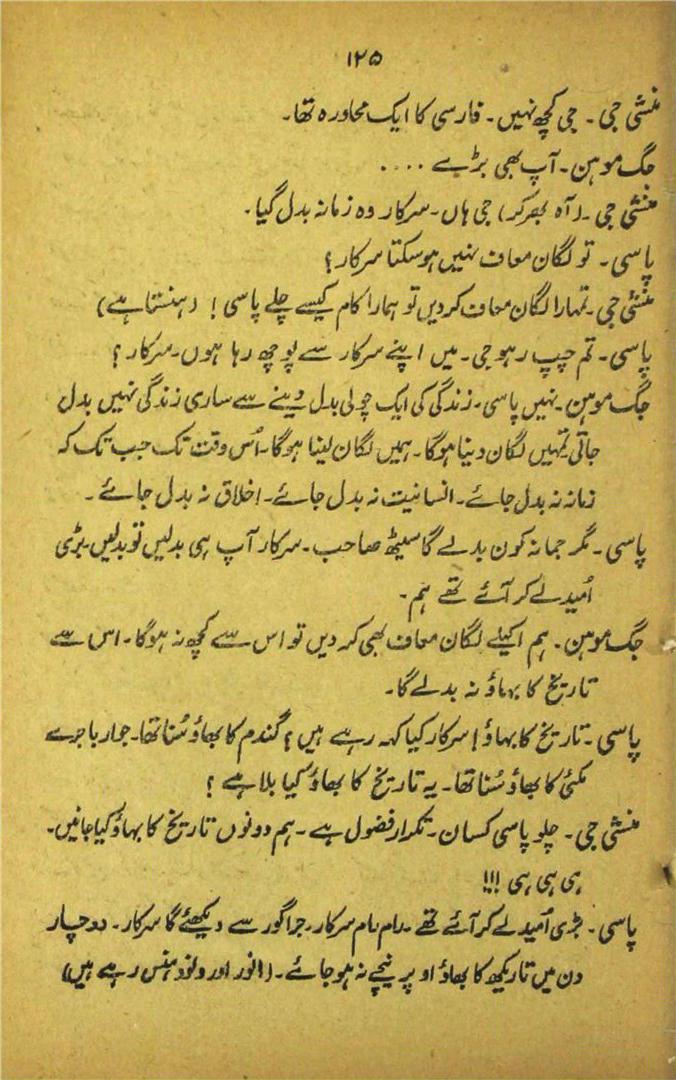 ۱۲۵
منشی جی ۔ جی کچھ نہیں ۔ فارسی کا ایک محاورہ تھا۔
جگ موہن ۔ آپ بھی بڑے ۔۔۔۔
منشی جی ۔ (آہ بھر کر) جی ہاں ۔ سرکار وہ زمانہ بدل گیا۔
پاسی ۔ تو لگان معاف نہیں ہو سکتا سرکار؟
منشی جی ۔ تمہارا لگان معاف کر دیں تو ہمارا کام کیسے چلے پاسی! (ہنستا ہے)
پاسی ۔ تم چپ رہو جی ۔ میں اپنے سرکار سے پوچھ رہا ہوں ۔ سرکار؟
جگ موہن ۔ نہیں پاسی ۔ زندگی کی ایک چولی بدل دینے سے ساری زندگی نہیں بدل
جاتی تمہیں لگان دینا ہوگا ۔ ہمیں لگان لینا ہوگا ۔ اُس وقت تک جب تک کہ
زمانہ نہ بدل جائے ۔ انسانیت نہ بدل جائے ۔ اخلاق نہ بدل جائے ۔
پاسی ۔ مگر جمانہ کون بدلے گا سیٹھ صاحب ۔ سرکار آپ ہی بدلیں تو بدلیں ۔ بڑی
اُمید لے کر آئے تھے ہم ۔
جگ موہن ۔ ہم اکیلے لگان معاف بھی کر دیں تو اس سے کچھ نہ ہوگا ۔ اس سے
تاریخ کا بہاؤ نہ بدلے گا ۔
پاسی ۔ تاریخ کا بہاؤ! سرکار کیا کہہ رہے ہیں؟ گندم کا بھاؤ سُنا تھا ۔ جوار باجرے
مکئی کا بھاؤ سُنا تھا ۔ یہ تاریخ کا بھاؤ کیا بلا ہے؟
منشی جی ۔ چلو پاسی کسان ۔ تکرار فضول ہے ۔ ہم دونوں تاریخ کا بہاؤ کیا جانیں ۔
ہی ہی ہی !!!
پاسی ۔ بڑی اُمید لے کر آئے تھے ۔ رام رام سرکار ۔ جرا گور سے دیکھئے گا سرکار ۔ دو چار
دن میں تاریکھ کا بھاؤ اوپر نیچے نہ ہو جائے ۔ (انور اور ونود ہنس رہے ہیں)